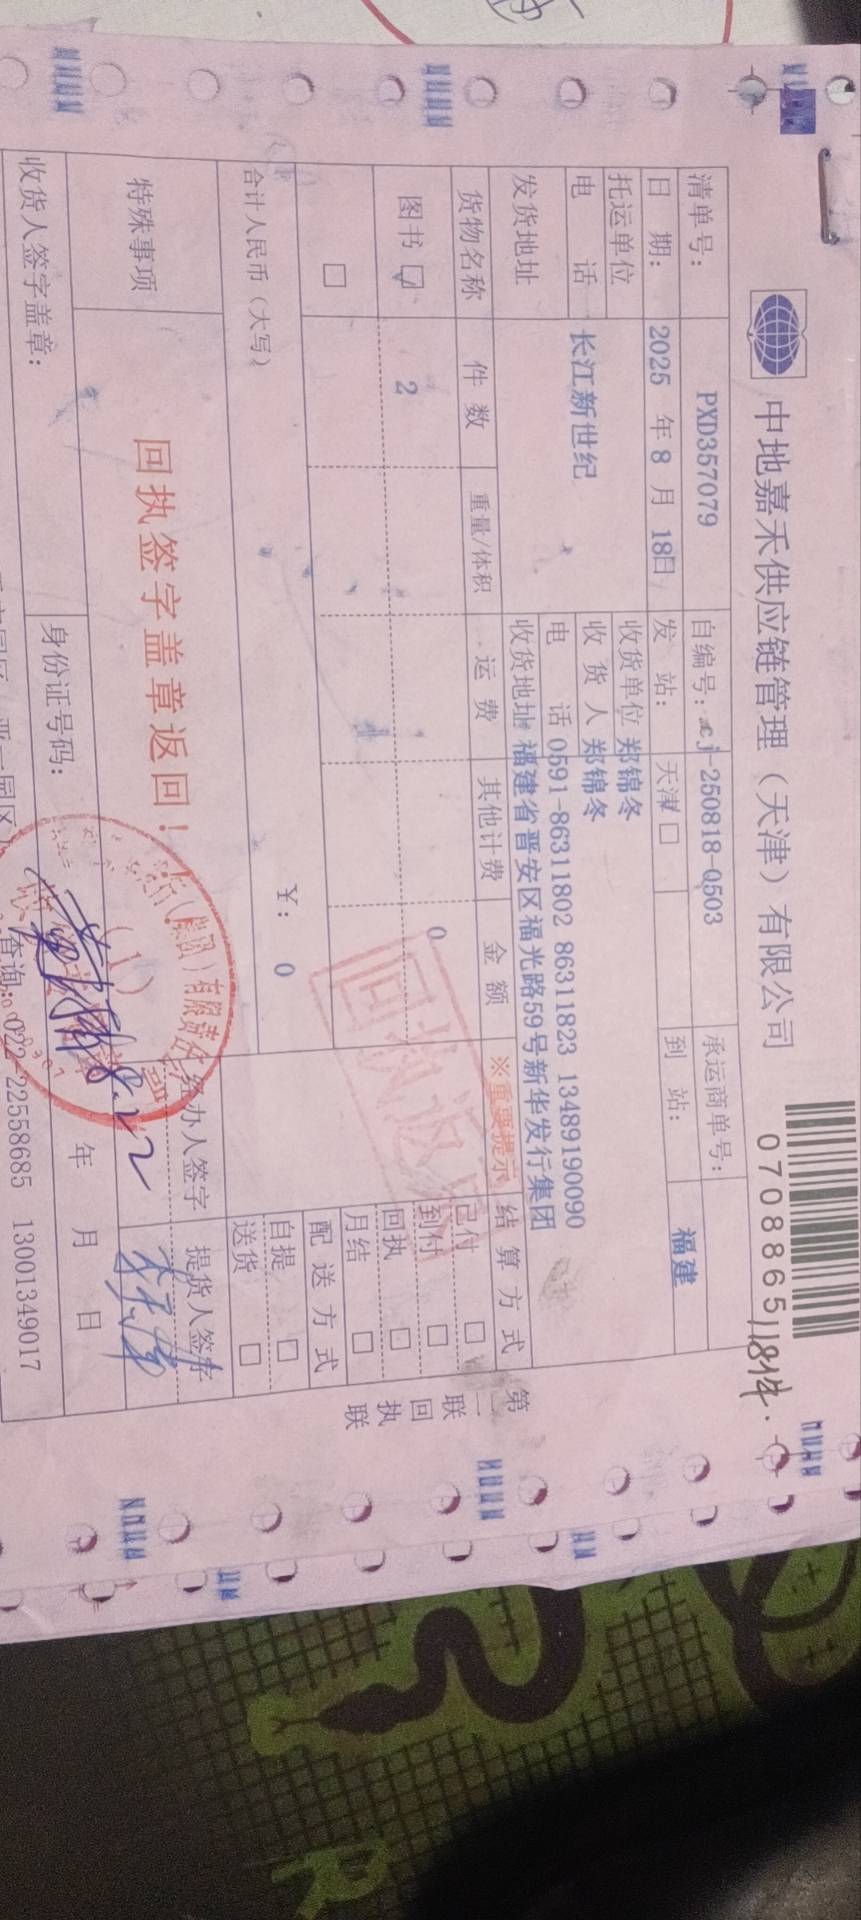 中地嘉禾供应链管理（天津）有限公司
07088651
18件.
清单号： PXD357079 自编号： cj-250818-0503 承运商单号：
日 期： 2025 年 8 月 18日 发 站： 天津 □ 到 站： 福建
托运单位 长江新世纪 收货单位 郑锦冬
收 货 人 郑锦冬
电 话 电 话 0591-86311802 86311823 13489190090
发货地址 收货地址 福建省晋安区福光路59号新华发行集团
货物名称 件 数 重量/体积 运 费 其他计费 金 额 ※重要提示 结 算 方 式
图书 ☑ 2 0
□
已付 □
到付 □
回执 □
月结 □
配 送 方 式
自提 □
送货 □
回执返回
合计人民币（大写） ￥： 0
特殊事项 回执签字盖章返回！
经办人签字 提货人签字
8.22
收货人签字盖章： 身份证号码： 年 月 日
查询：022-22558685 13001349017
第二联 回执联